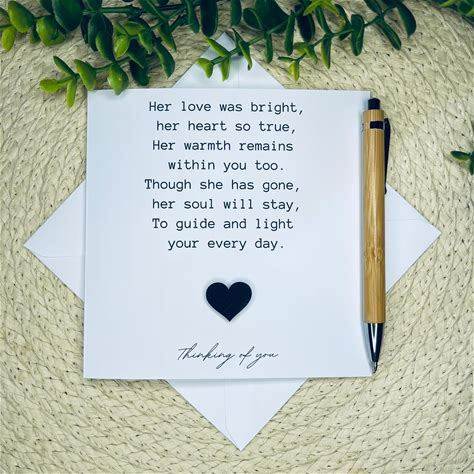 Her love was bright,
her heart so true,
Her warmth remains
within you too.
Though she has gone,
her soul will stay,
To guide and light
your every day.
Thinking of you